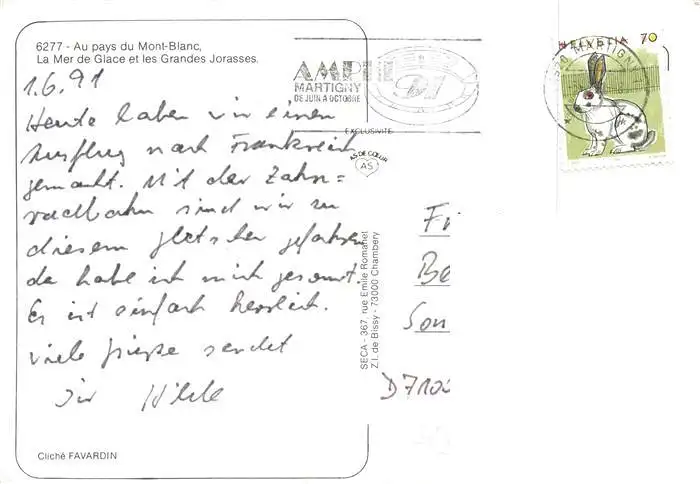 6277 - Au pays du Mont-Blanc,
La Mer de Glace et les Grandes Jorasses.
1.6.91
Heute haben wir einen
Ausflug nach Frankreich
gemacht. Mit der Zahn=
radbahn sind wir zu
diesem Gletscher gefahren
da habe ich mich gesonnt.
Es ist einfach herrlich.
Viele Grüsse sendet
Cliché FAVARDIN
MARTIGNY
DE JUIN A OCTOBRE
EXCLUSIVITÉ
AS DE CŒUR
AS
SECA - 367, rue Emile Romanet
Z.I. de Bissy - 73000 Chambery
HELVETIA 70
MARTIGNY
Fr
Be
Son
D7100